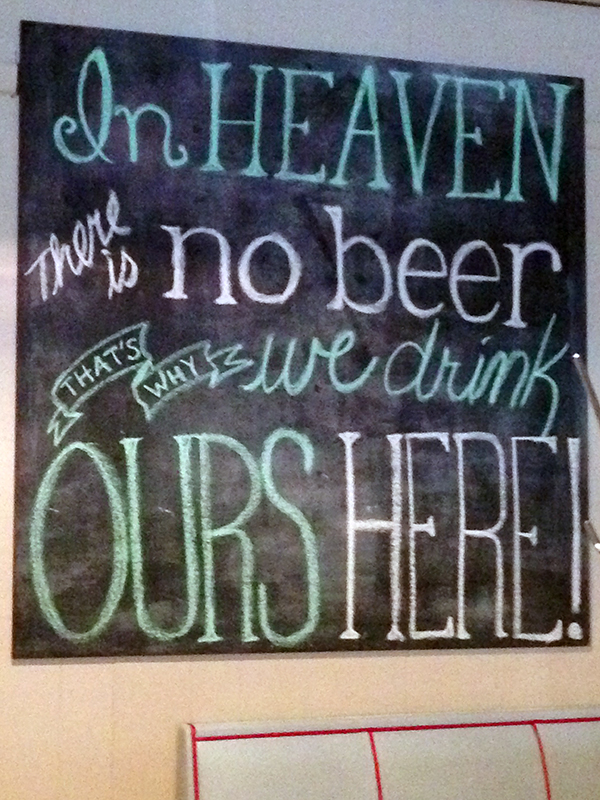 In HEAVEN
There is no beer
THAT'S WHY we drink
OURS HERE!